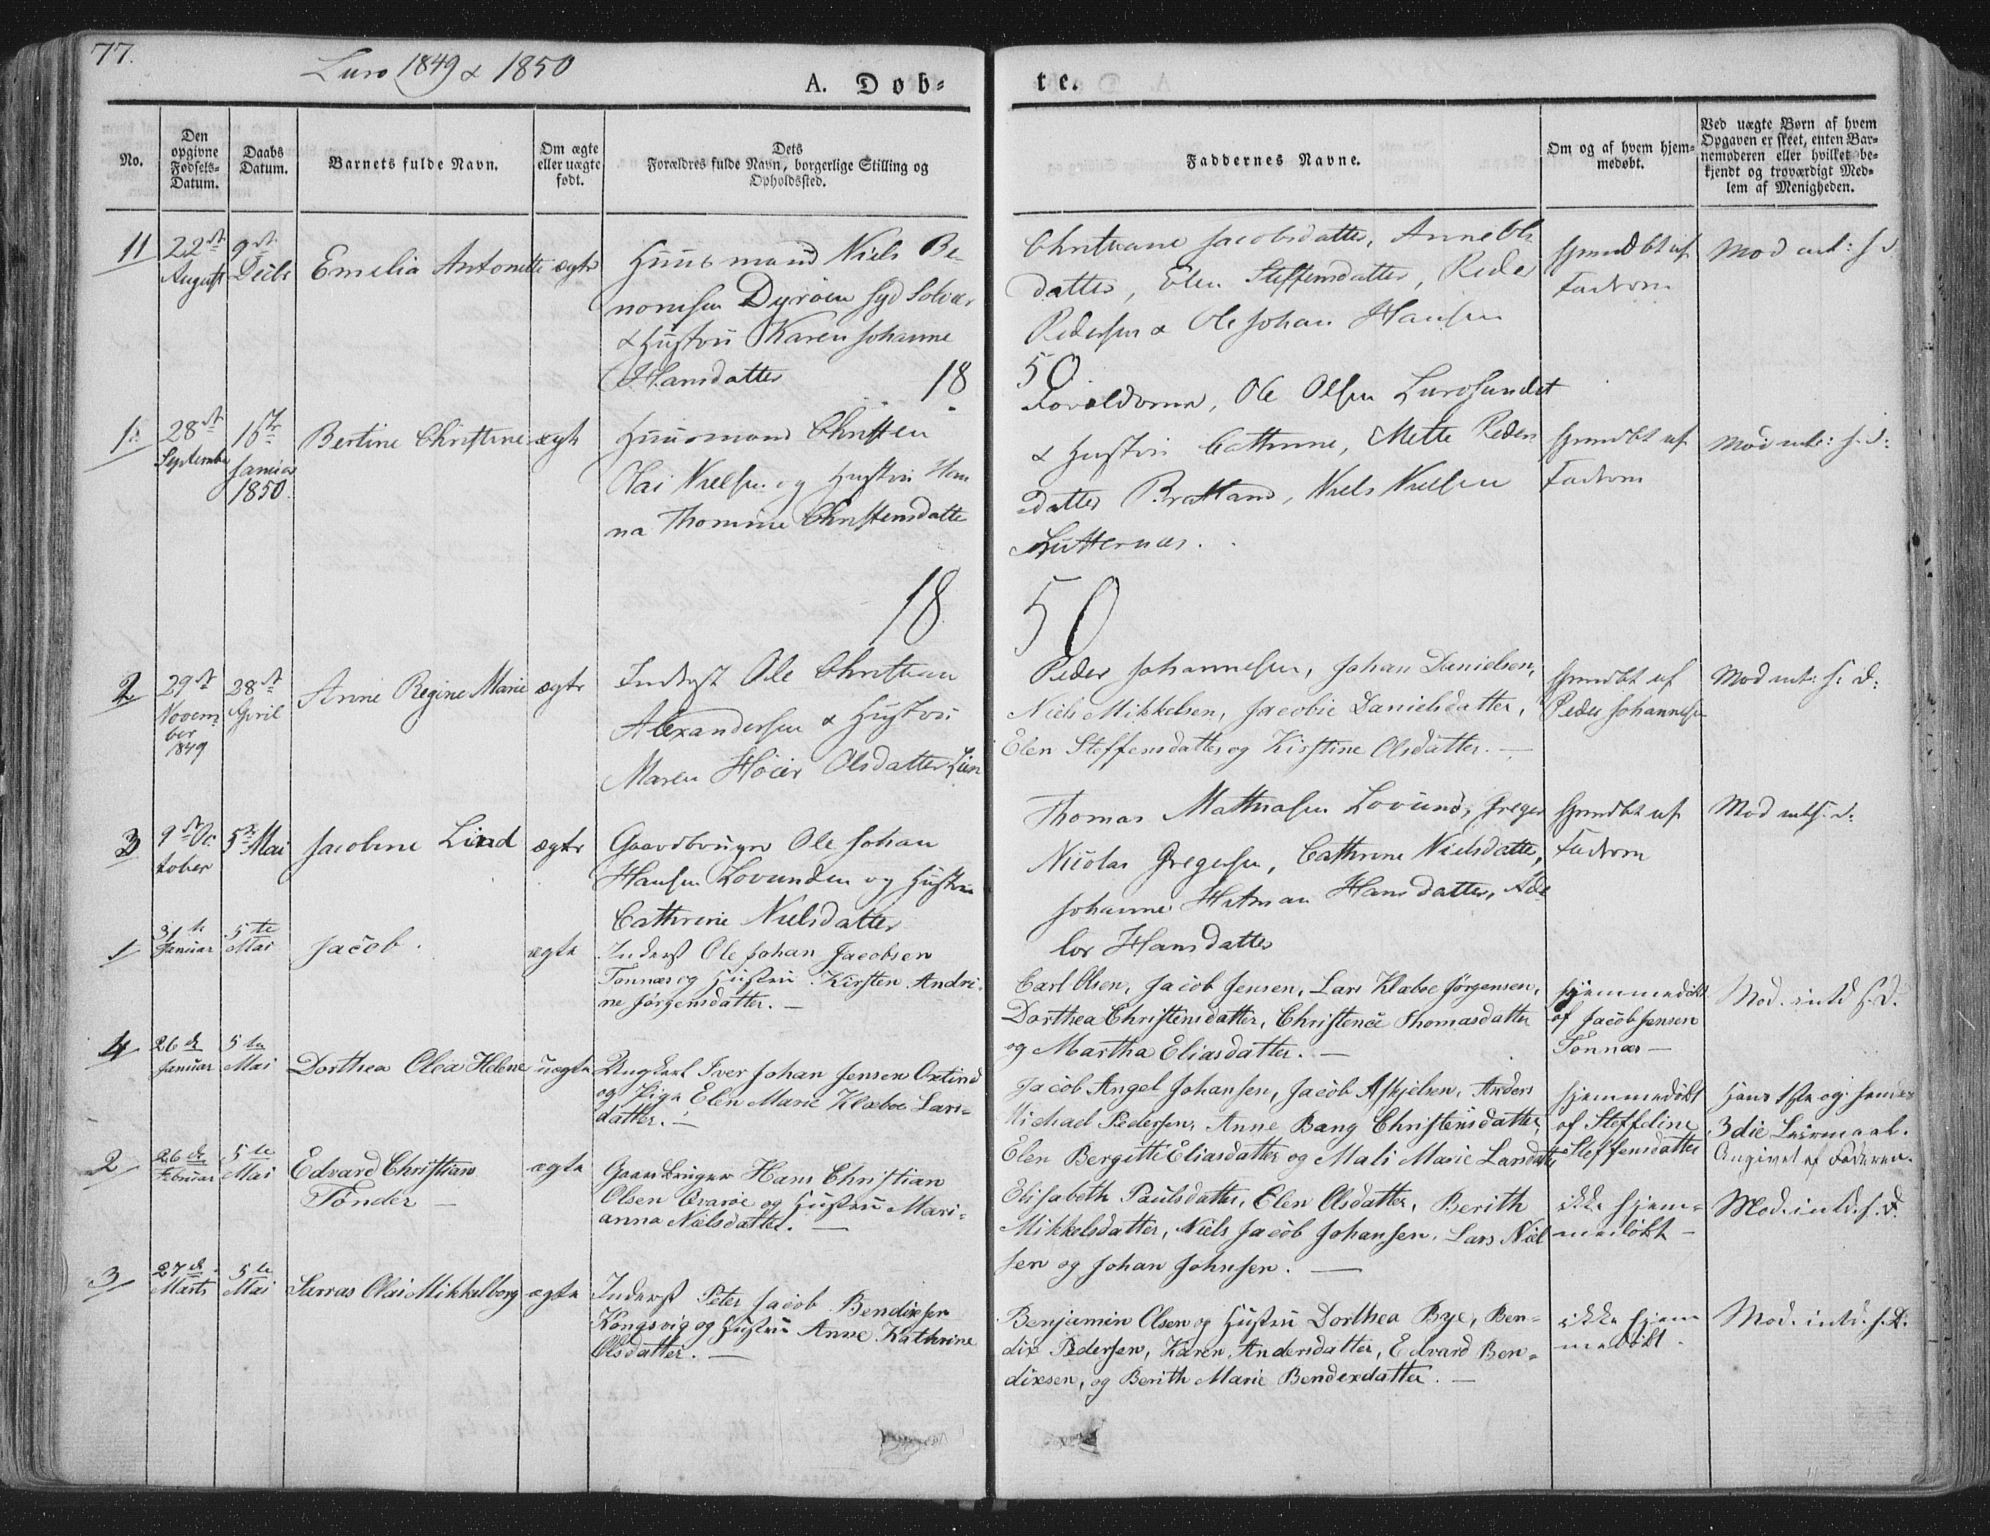 77.
Lurø 1849 & 1850
A. Døb-
te.
No.
Den opgivne Fødsels-Datum.
Daabs Datum.
Barnets fulde Navn.
Om ægte eller uægte født.
Dets Forældres fulde Navn, borgerlige Stilling og Opholdssted.
Faddernes Navne.
Om og af hvem hjem-medøbt.
Ved uægte Børn af hvem Opgaven er skeet, enten Bar-nemoderen eller hvilket be-kjendt og troværdigt Med-lem af Menigheden.
11 22de August 9de Decbr Emelia Antonette ægte
Huusmand Niels Be-
nonisen Dyröen Syd Solvær
& Hustru Karen Johanne
Hansdatter
Christiane Jacobsdatter, Anne
datter, Elen Steffensdatter, Peder
Pedersen & Ole Johan Hansen
Hjemdbt af
Faderen
Mod int: s. d.
18 50
1. 28de September 16de Januar 1850 Bertine Christine ægte
Huusmand Christen
Olai Nielsen og Hustru Han
na Thomine Christensdatter
Forældrene, Ole Olsen Lurøsundet
& Hustru Cathrine, Mette Peders
datter Bratland, Niels Nielsen
Hjemdbt af
Faderen
Mod int: s. d:
18 50
2 29de Novem-ber 1849 28de April Anne Regine Marie ægte
Inderst Ole Christian
Alexandersen & Hustru
Maren Höier Olsdatter
Peder Johannesen, Johan Danielsen,
Niels Mikkelsen, Jacobie Danielsdatter,
Elen Steffensdatter og Kirstine Olsdatter. —
Hjemdbt af
Peder Johannesen
Mod int: s. d:
3 9de October 5te Mai Jacobine Lind ægte
Gaardbruger Ole Johan
Hansen Lovunden og Hustru
Cathrine Nielsdatter
Thomas Mathiasen Lovund, Greger
Nicolai Gregersen, Cathrine Nielsdatter,
Johanne Hatman Hansdatter, Ade
lor Hansdatter
Hjemdbt af
Faderen
Mod int s. d:
1 31te Januar 5te Mai Jacob. ægte
Inderst Ole Johan Jacobsen
Tonnæs og Hustru Kirsten Andri-
ne Jörgensdatter. —
Carl Olsen, Jacob Jensen, Lars Klæboe Jørgensen,
Dorthea Christensdatter, Christence Thomasdatter
og Martha Eliasdatter. —
Hjemmedöbt
af Jacob Jensen
Tonnæs —
Mod. intd s. d.
4 26de Januar 5te Mai Dorthea Olea Helene uægte
Ungkarl Iver Johan Jensen
og Pige Elen Marie Klæboe Lars-
datter. —
Jacob Angel Johansen, Jacob Askjelsen, Anders
Michael Pedersen, Anne Bang Christensdatter,
Elen Bergitte Eliasdatter og Mali Marie Larsdatter
Hjemmedöbt
af Steffeline
Steffensdatter
Hans 1ste og hendes
3die Leiermaal.
Angivet af Faderen.
2 26de Februar 5te Mai Edvard Christian
Tönder — ægte
Gaardbruger Hans Christian
Olsen Qvarøe og Hustru Mari-
anna Nielsdatter. —
Elisabeth Paulsdatter, Elen Olsdatter, Berith
Mikkelsdatter, Niels Jacob Johansen, Lars Niel
sen og Johan Johnsen. —
ikke hjem-
medöbt —
Mod. intd. s. d.
3 27de Marts 5te Mai Sarras Olai Mikkelborg ægte
Inderst Peter Jacob Bendixsen
Kongsvig og Hustru Anne Kathrine
Olsdatter. —
Benjamin Olsen og Hustru Dorthea Bye, Ben-
dix Pedersen, Karen Andersdatter, Edvard Ben-
dixsen, og Berith Marie Bendexdatter. —
ikke hjem
medöbt.
Mod. intd. s. d.